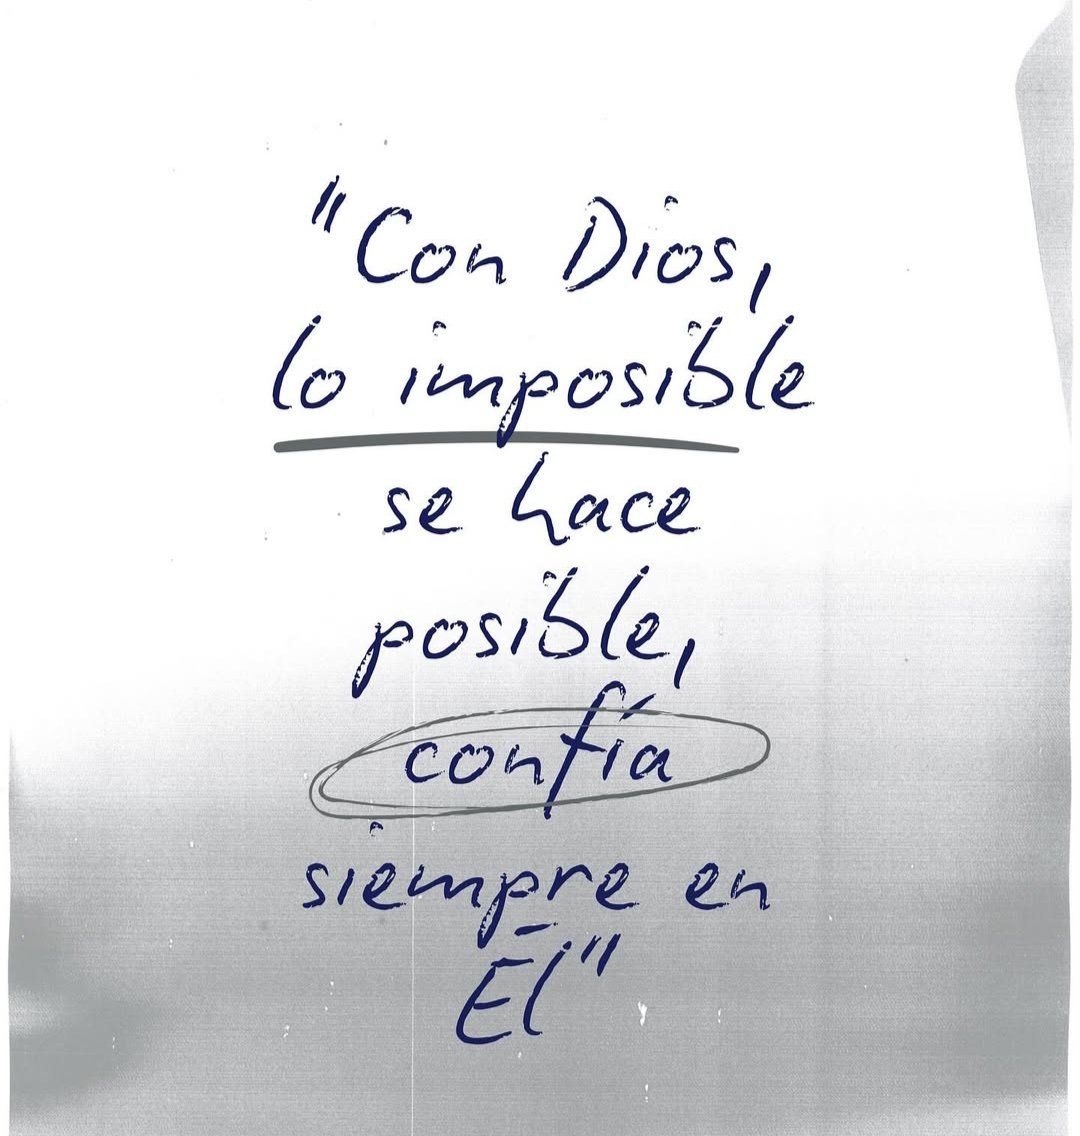 "Con Dios,
lo imposible
se hace
posible,
confía
siempre en
Él"